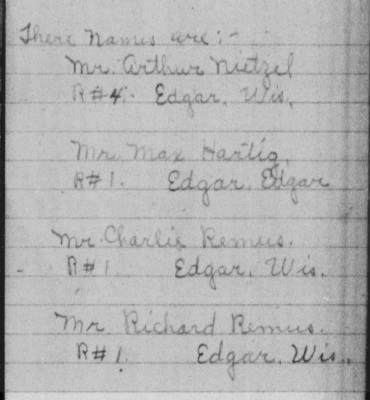 There Names are:-
Mr. Arthur Nietzel
R#4. Edgar, Wis.
Mr. Max Hartig,
R#1. Edgar, Edgar
Mr. Charlie Remus.
R#1 Edgar, Wis.
Mr. Richard Remus.
R#1. Edgar, Wis.